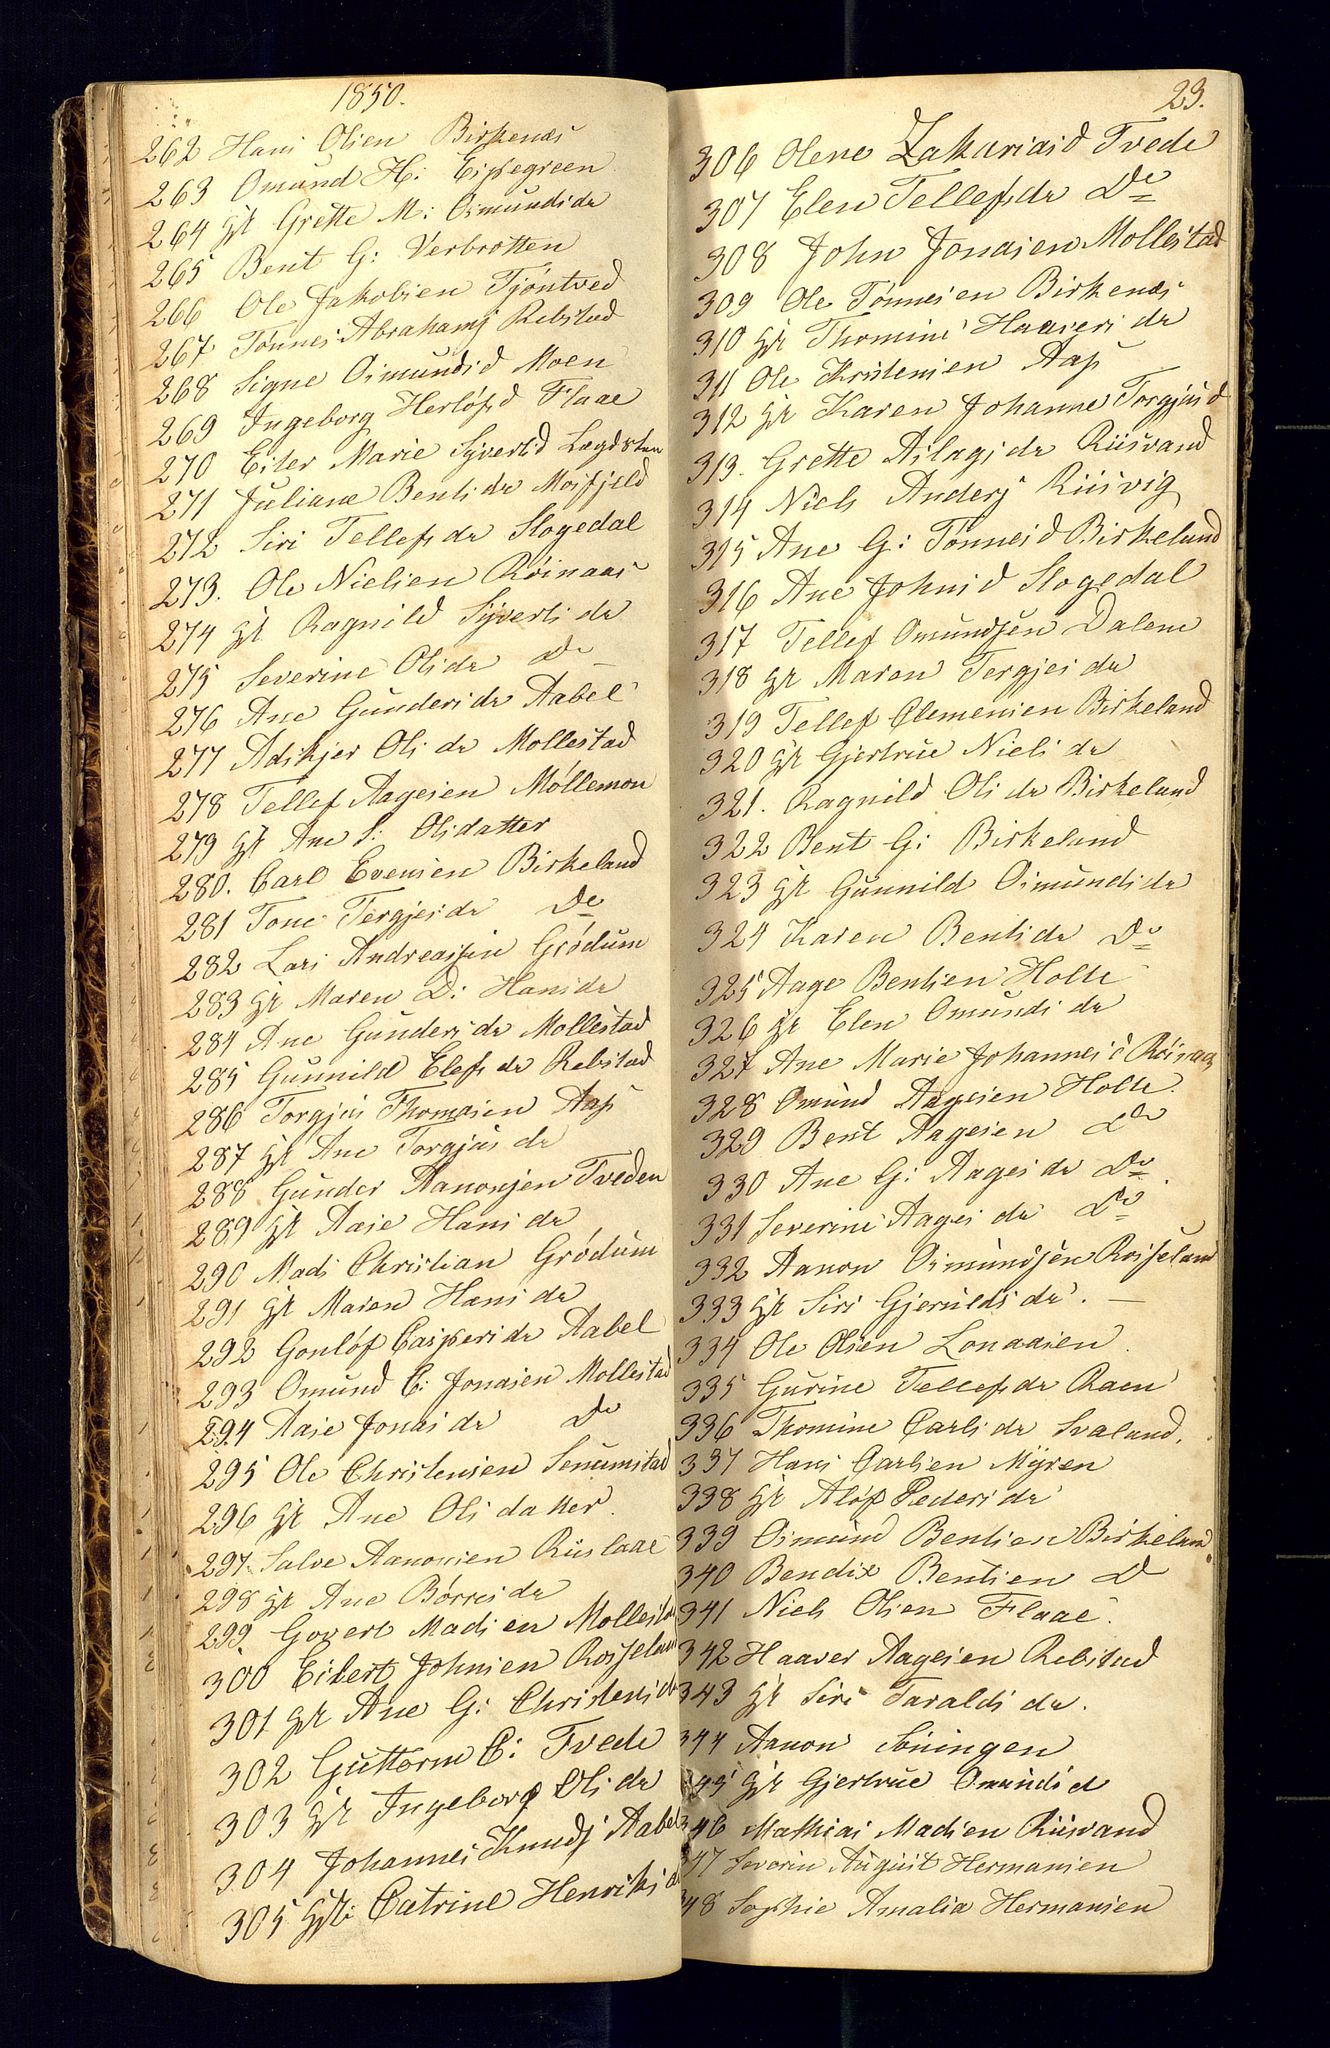 1850.
262 Hans Olsen Birkenæs
263 Omund H: Eppegreen
264 Gt Grette M: Osmundsdr
265 Bent G: Verbrotten
266 Ole Jakobsen Tjöntved
267 Tönnes Abrahamsj Rebstad
268 Signe Osmundsd Moen
269 Ingeborg Herlöfsd Flaae
270 Ester Marie Syvertsd Lægdsten
271 Juliane Bentsdr Mosfjeld
272 Siri Tellefsdr Slogedal
273. Ole Nielsen Röinaas
274 Gt Ragnild Syvertsdr
275 Severine Olsdr Do
276 Ane Gundersdr Aabel
277 Adskjer Olsdr Mollestad
278 Tellef Aagesen Möllemon
279 Gt Ane S: Olsdatter
280. Carl Evensen Birkeland
281 Tone Tergjesdr Do
282 Lars Andreassen Grödum
283 Gt Maren D: Hansdr
284 Ane Gundersdr Mollestad
285 Gunnild Elefsdr Rebstad
286 Torgjus Thomasen Aas
287 Gt Ane Torgjusdr
288 Gunder Aanonsen Tveden
289 Gt Aase Hansdr
290 Mads Christian Grödum
291 Gt Maren Hansdr
292 Gonlöf Caspersdr Aabel
293 Omund C: Jonasen Mollestad
294 Aase Jonasdr Do
295 Ole Christensen Senumstad
296 Gt Ane Olsdatter.
297. Salve Aanonsen Riislaae
298 Gt Ane Börresdr
299. Govert Madsen Mollestad
300 Eilert Johnsen Rosseland
301 Gt Ane G: Christensdr
302 Guttorm C: Tvede
303 Gt Ingeborg Olsdr
304 Johannes Knudsj Aabel
305 Gt: Catrine Henriksd
23.
306 Olene Zakariasd Tvede
307 Elen Tellefsdr Do
308 John Jonasen Mollestad
309 Ole Tönnesen Birkenæs
310 Gt Thomine Haaversdr
311 Ole Kristensen Aas
312 Gt Karen Johanne Torgjusd
313. Grette Aslagsdr Riisvand
314 Niels Andersj Riisvig
315 Ane G: Tönnesd Birkeland
316 Ane Johnsd Slogedal
317 Tellef Omundsen Dalene
318 Gt Maren Tergjesdr
319 Tellef Clemensen Birkeland
320 Gt Gjertrue Nielsdr
321. Ragnild Olsdr Birkeland
322 Bent G: Birkeland
323 Gt Gunnild Osmundsdr
324 Karen Bentsdr Do
325 Aage Bentsen Holte
326 Gt Elen Omundsdr
327 Ane Marie Johannesd Röinaas
328 Omund Aagesen Holte.
329 Bent Aagesen Do
330 Ane G: Aagesdr Do.
331 Severine Aagesdr Do
332 Aanon Osmundsen Rosseland
333 Gt Siri Gjeruldsdr. —
334 Ole Olsen Lonaasen.
335 Gurine Tellefsdr Raen
336 Thomine Carlsdr Svaland.
337 Hans Carlsen Myren
338 Gt Alöf Pedersdr
339 Osmund Bentsen Birkeland
340 Bendix Bentsen D
341 Niels Olsen Flaae.
342 Haaver Aagesen Rebstad
343 Gt Siri Taraldsdr.
344 Aanon Söningen
345 Gt Gjertrue Omundsd
346 Mathias Madsen Riisvand
347 Severin August Hermansen
348 Sophie Amalia Hermansen